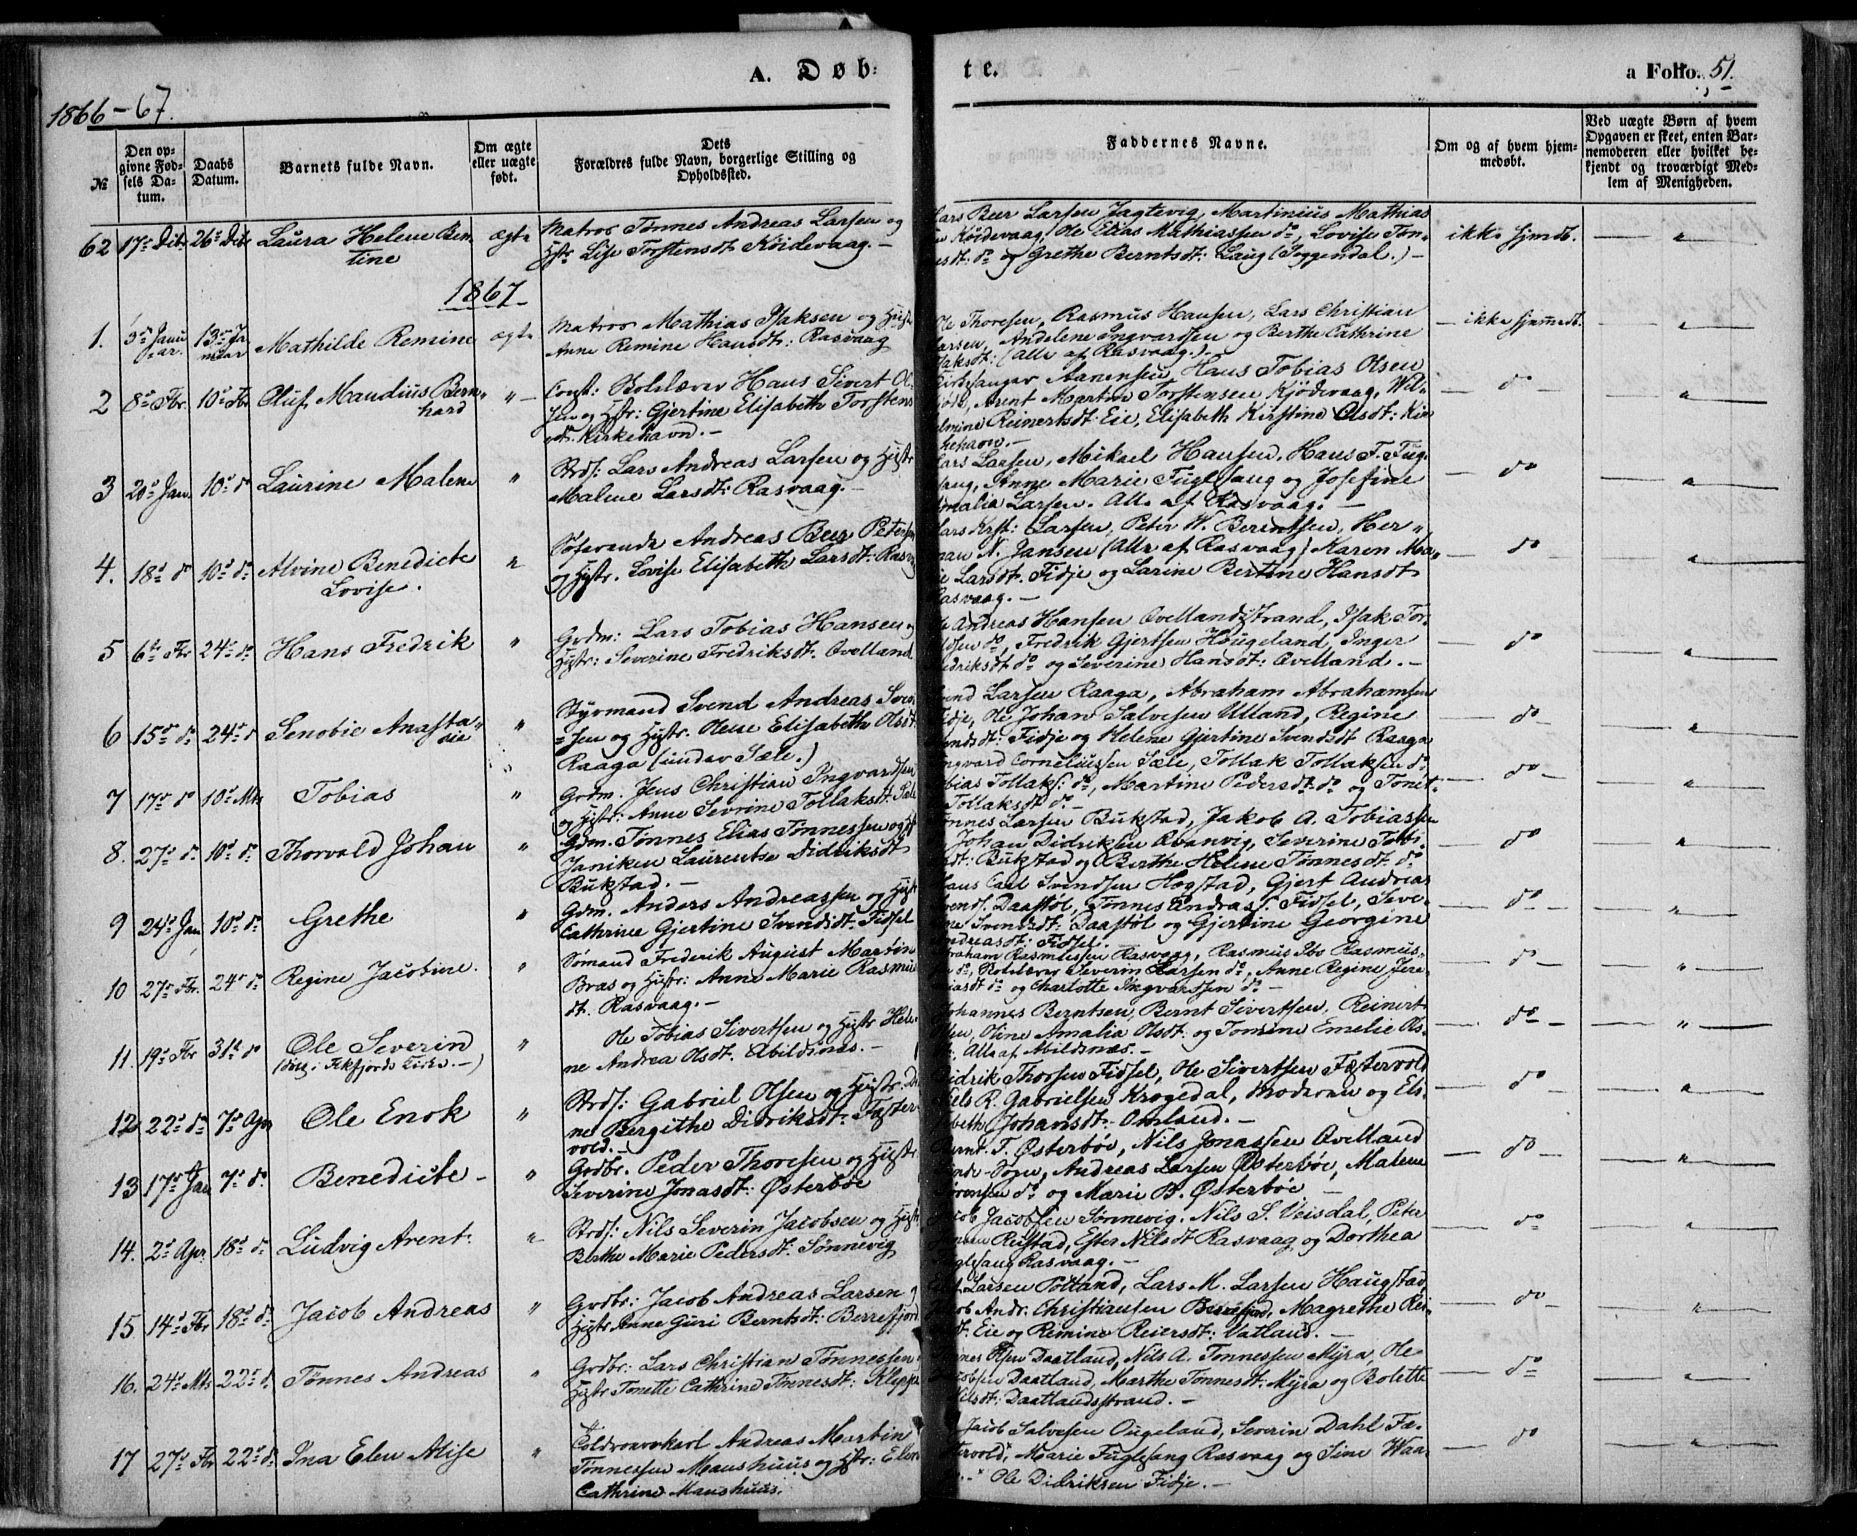 A. Døb-
te.
a Folio. 51.
1866-67.
№
Den op-
givne Fød-
sels Da-
tum.
Daabs
Datum.
Barnets fulde Navn.
Om ægte
eller uægte
født.
Dets
Forældres fulde Navn, borgerlige Stilling og
Opholdssted.
Faddernes Navne.
Om og af hvem hjem-
medøbt.
Ved uægte Børn af hvem
Opgaven er skeet, enten Bar-
nemoderen eller hvilket be-
kjendt og troværdigt Med-
lem af Menigheden.
62 17de Dcbr 26de Dcbr Laura Helene Ben-
tine
ægte
Matros Tønnes Andreas Larsen og
Hstr Lise Torstensdt. Kjødevaag.
Lars Beer Larsen Jagtevig, Martinius Mathias
Kjødevaag, Ole Elias Mathiassen do, Lovise Tøn-
do og Grethe Berntsdt: Laug (Soggendal.)
ikke hjmdt.
1867
1. 13de Ja-
nuar
Mathilde Remine
ægte
Matros Mathias Isaksen og Hustr
Anne Remine Hansdt: Rasvaag
Ole Thoresen, Rasmus Hansen, Lars Christian
Larsen, Andelene Ingvardsen og Berthe Cathrine
Isaksdt: (Alle af Rasvaag.)
ikke hjemmedt.
2 8de Fbr. 10de Fbr Oluf Maudius Bern-
hard
Const: Skolelærer Hans Sivert Ol-
sen og Hstr: Gjertine Elisabeth Torstens
dt. Kirkehavn.
Kirkesanger Aanensen, Hans Tobias Olsen
Arent Martin Torstensen Kjødevaag, Wil-
helmine Reinertsdt: Eie, Elisabeth Kirstine Olsdt: Kir-
kehavn.
do
3 Jan. 10de do Laurine Malene
Strds: Lars Andreas Larsen og Hustr
Malene Larsdt: Rasvaag.
Lars Larsen, Mikael Hansen, Hans F. Fug-
sang, Anne Marie Fuglesang og Josefine
Amalia Larsen. Alle af Rasvaag.
do
4. 18de do 10de do Alvine Benedicte
Lovise.
Andreas Beer Petersen
og Hustr. Lovise Elisabeth Larsdt: Rasvg
Lars Krst: Larsen, Peter W. Berentsen, Her-
man N. Jansen (Alle af Rasvaag) Karen Ma-
rie Larsdt. Fidje og Larine Bertine Hansdt
Rasvaag.
do
5 6te Fbr 24de do Hans Fredrik
Grdm: Lars Tobias Hansen og
Hustr: Severine Fredriksdt. Ovelland
Andreas Hansen Ovellandstrand, Isak Tor-
do, Fredrik Gjertsen Hougeland, Inger
Fredriksdt do og Severine Hansdt: Ovelland.
do
6 15de do 24de do Senobie Anasta-
sie
Styrmand Svend Andreas Svend-
sen og Hustr. Olene Elisabeth Olsdt
Raaga (under Sæle.)
Svend Larsen Raaga, Abraham Abrahamsen
Fidje, Ole Johan Salvesen Ulland, Regine
Svendsdt: Fidje og Helene Gjertine Svendsdt Raaga
do
7 17de do 10de Mts Tobias
Grdm. Jens Christian Ingvardsen
og Hustr: Anne Sevrine Tollaksdt: Sæle
Ingvard Corneliussen Sæle, Tollak Tollaksen do
Tobias Tollaks: do, Martine Pedersdt: do og
Tollaksdt do.
do
8. 27de do 10de do Thorvald Johan
Gdm. Tønnes Elias Tønnessen og
Janiken Laurentse Didriksdt
Bukstad.
Tønnes Larsen Bukstad, Jakob A. Tobiassen
Johan Didriksen Svanvig, Severine Tobi-
Bukstad og Berthe Helene Tønnesdt. do
do
9 24de Jan 10de do Grethe
Gdm. Anders Andreassen og Hust
Cathrine Gjertine Svendsdt: Fidsel
Hans Carl Svendsen Hogstad, Gjert Andreas
Svends. Daastøl, Tønnes Andreass. Fidsel, Seve-
rine Svendsdt: Daastøl og Gjertine Georgine
Andreasdt: Fidsel.
do
10 27de Fbr. 24de do Regine Jacobine.
Sømand Frederik August Martin
Bras og Hustr: Anne Marie Rasmus
dt. Rasvaag.
Abraham Rasmussen Rasvaag, Rasmus Ibo Rasmus-
do, Skolelærer Severin Larsen do, Anne Regine Jere-
miasdt do og Charlotte Ingvardsen do
do
11. 19de Fbr 31te do Ole Severin
(døbt i Fekfjords Kirke.)
Ole Tobias Sivertsen og Hustr Hele-
ne Andrea Olsdt. Abildsnes.
Johannes Berntsen, Bernt Sivertsen, Reinert
Olsen, Oline Amalia Olsdt: og Tomine Emelie Ols-
Alle af Abildsnes.
do
12 22de do 7de Apr Ole Enok
Strds: Gabriel Olsen og Hustr:
Bergithe Didriksdt: Fæster-
vold.
Didrik Thorsen Fidsel, Ole Sivertsen Fæstervold
Niels R. Gabrielsen Krogedal, Moderen og Els-
beth Johansdt. Omland.
do
13 17de Jan 7de do Benedicte
Grdbr. Peder Thoresen og Hustr
Severine Jonasdt: Østerbøe
Bernt T. Østerbøe, Nils Jonassen Ovelland
Sogn, Andreas Larsen Østerbøe, Malene
Sørensen do og Marie B. Østerbøe
do
14. 2de Apr. 18de do Ludvig Arent.
Strds: Nils Severin Jacobsen og Hustr
Berthe Marie Pedersdt: Sønnevig
Jacob Jacobsen Sønnevig. Nils S. Veisdal, Peter
Rustad, Ester Nilsdt Rasvaag og Dorthea
Fuglesang Rasvaag.
do
15 14de Fbr 18de do Jacob Andreas
Grdbr: Jacob Andreas Larsen og
Hustr Anne Guri Berntsdt: Berrefjord
Larsen Potland, Lars M. Larsen Haugstad,
Jacob Andr. Christiansen Berrefjord, Magrethe Rei-
Eie og Remine Reiersdt: Vatland.
do
16. 24de Mts 22de do Tønnes Andreas
Grdbr: Lars Christian Tønnessen
Hustr Tonette Cathrine Tønnesdt: Kleppe
Olsen Daatland, Nils A. Tønnessen Myra, Ole
Jacobsen Daatland, Marthe Tønnesdt: Myra og Bolette
Nilsdt: Daatlandsstrand.
do
17 27de Fbr 22de do Ina Elen Alise
Toldroerkarl Andreas Martin
Tønnessen Maushuus og Hstr: Elen
Cathrine Maushuus.
Jacob Salvesen Ougeland, Severin Dahl Fæ-
stervold, Marie Fuglesang Rasvaag og Sine Waa-
Ole Didriksen Fidje.
do